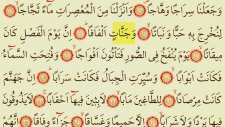 وَجَعَلْنَا سِرَاجًا وَهَّاجًا وَأَنزَلْنَا مِنَ الْمُعْصِرَاتِ مَاءً ثَجَّاجًا
لِنُخْرِجَ بِهِ حَبًّا وَنَبَاتًا وَجَنَّاتٍ أَلْفَافًا إِنَّ يَوْمَ الْفَصْلِ كَانَ
مِيقَاتًا يَوْمَ يُنفَخُ فِي الصُّورِ فَتَأْتُونَ أَفْوَاجًا وَفُتِحَتِ السَّمَاءُ
فَكَانَتْ أَبْوَابًا وَسُيِّرَتِ الْجِبَالُ فَكَانَتْ سَرَابًا إِنَّ جَهَنَّمَ
كَانَتْ مِرْصَادًا لِلطَّاغِينَ مَآبًا لَابِثِينَ فِيهَا أَحْقَابًا لَا يَذُوقُونَ